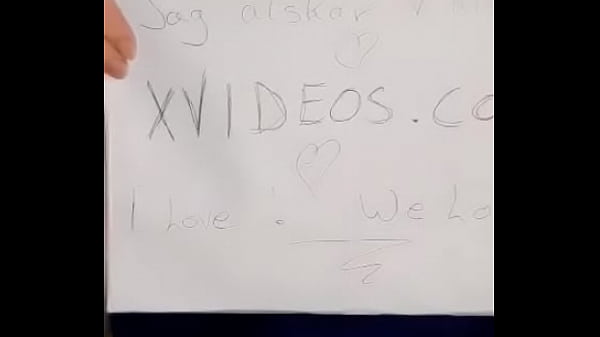 Jag älskar
XVIDEOS.CO
I Love! We Lo